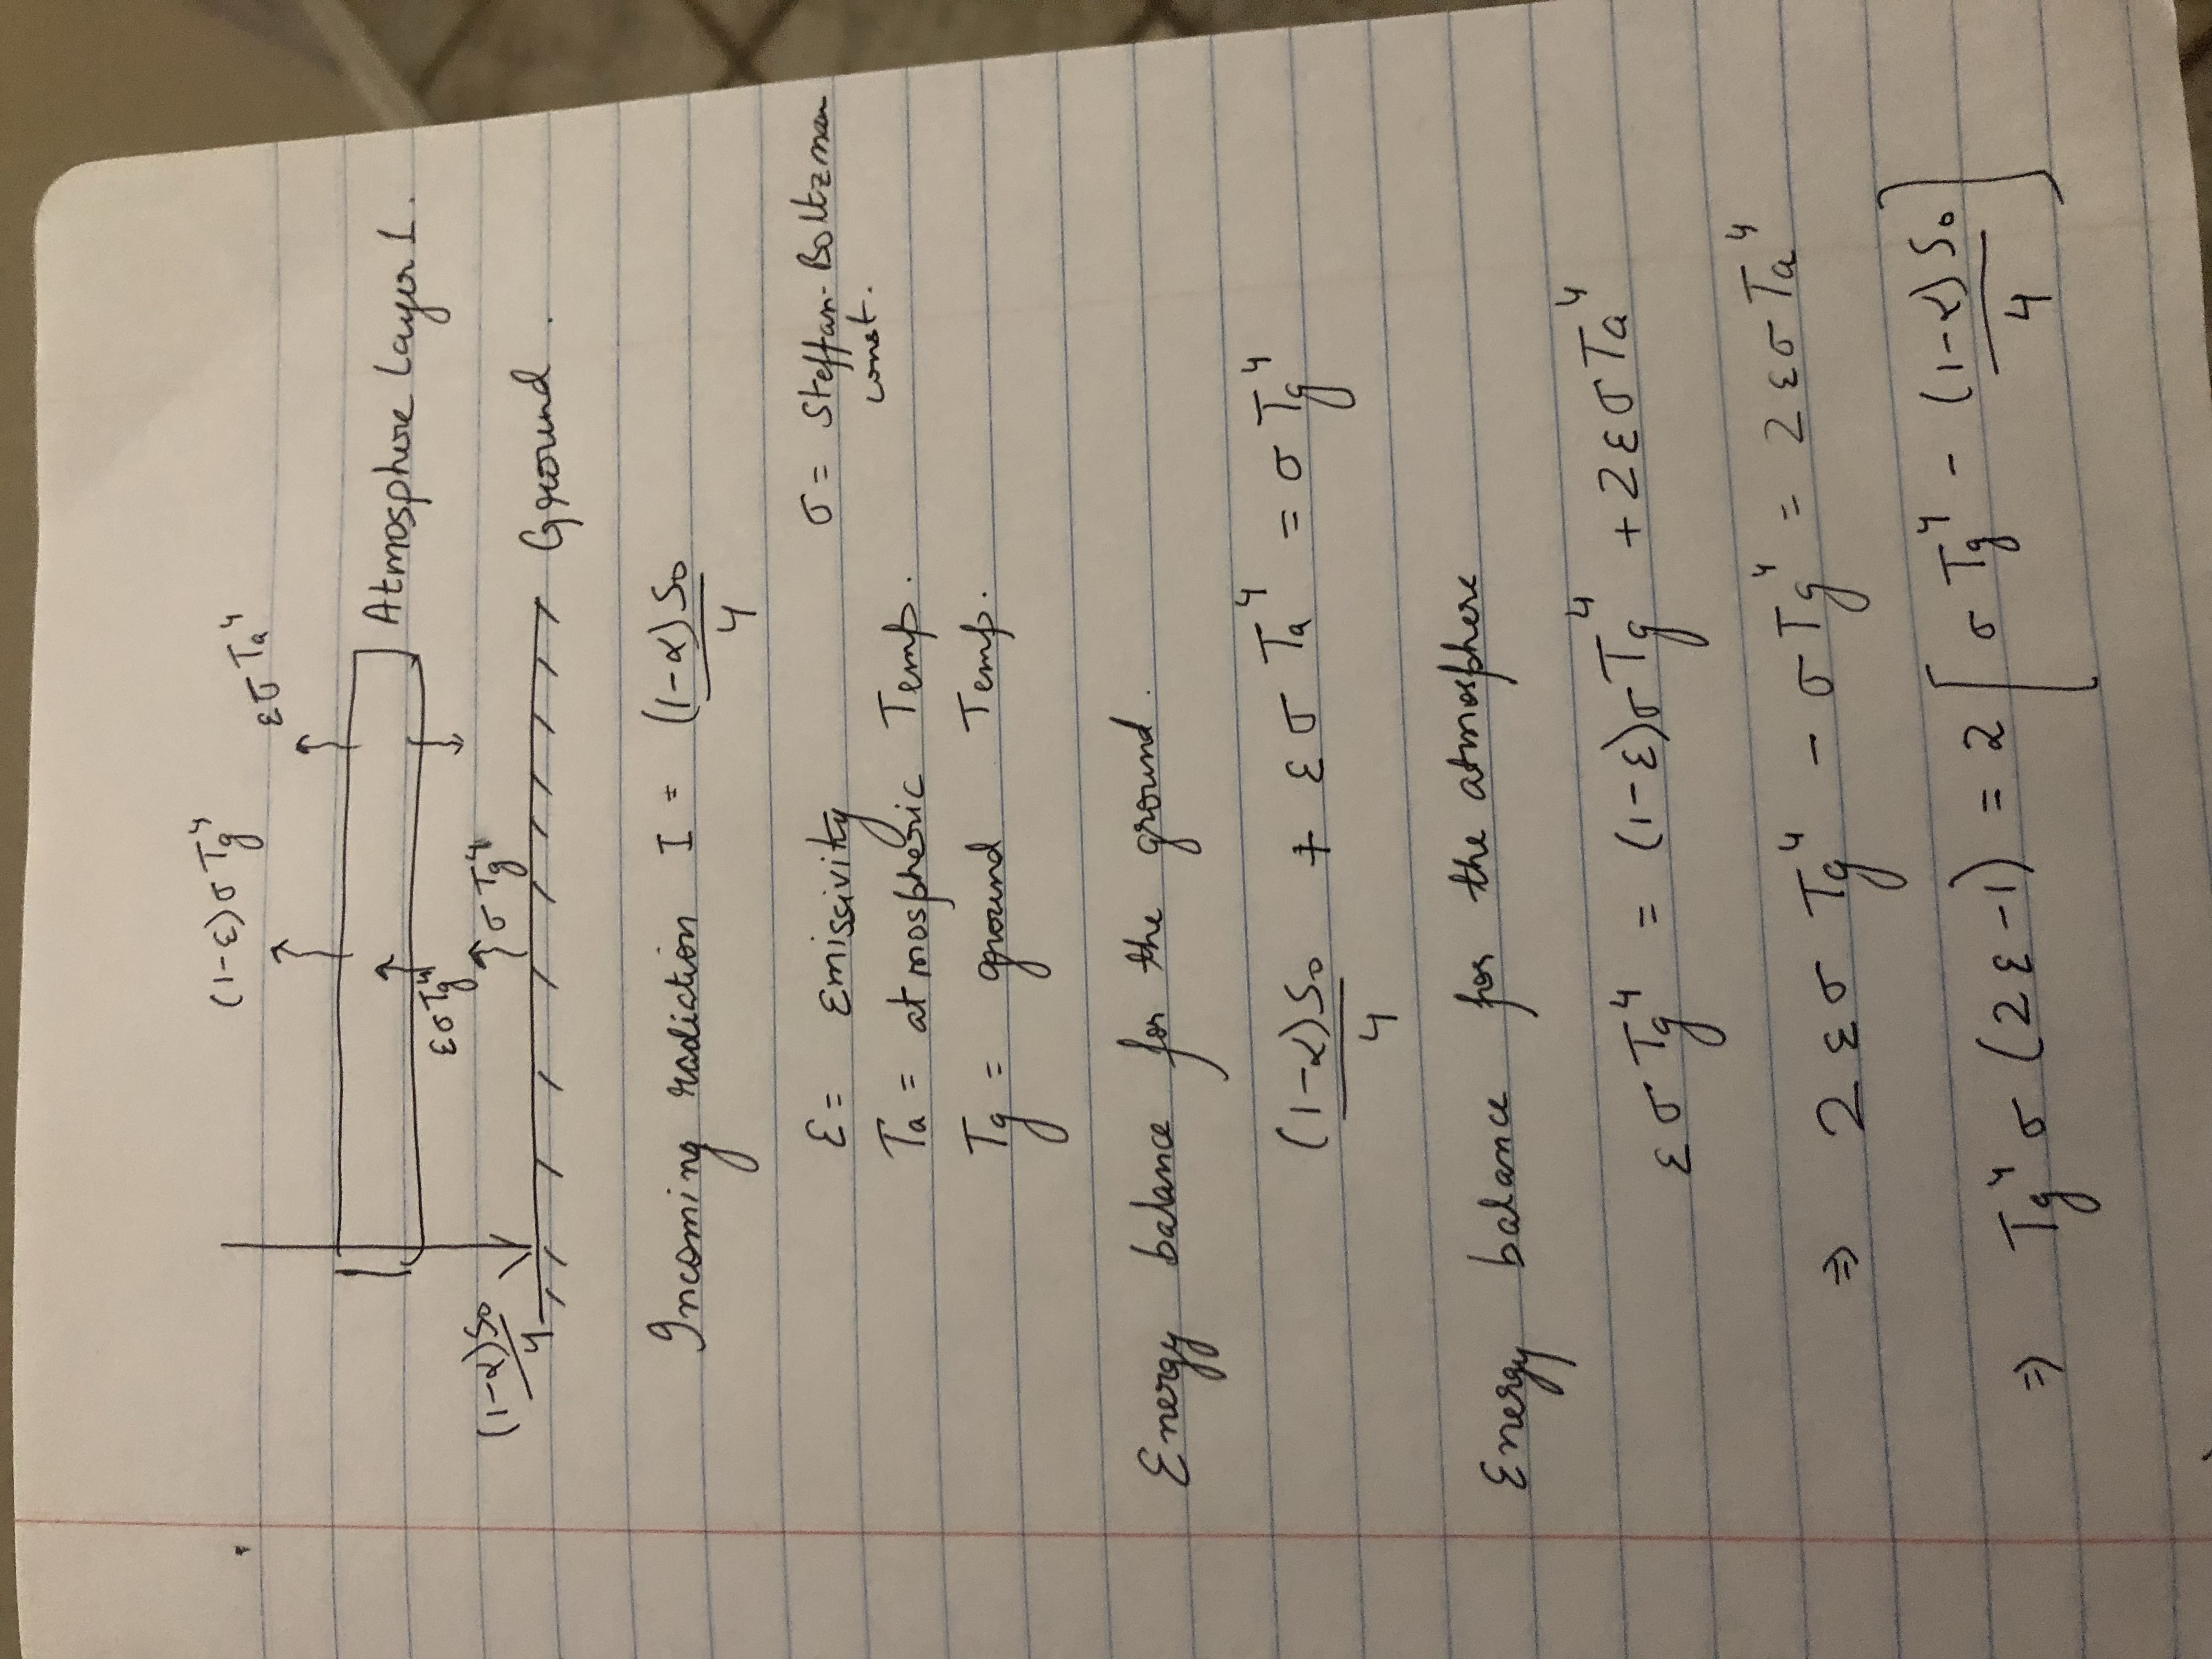 (1-ε)σTg⁴
εσTa⁴
Atmosphere Layer 1.
εσTg⁴
(1-α)S₀/4
σTg⁴
Ground.
Incoming radiation I = (1-α)S₀/4
ε = Emissivity
σ = Steffan-Boltzman
const.
Ta = atmospheric Temp.
Tg = ground Temp.
Energy balance for the ground.
(1-α)S₀/4 + εσTa⁴ = σTg⁴
Energy balance for the atmosphere
εσTg⁴ = (1-ε)σTg⁴ + 2εσTa⁴
⇒ 2εσTg⁴ - σTg⁴ = 2εσTa⁴
⇒ Tg⁴σ(2ε-1) = 2[σTg⁴ - (1-α)S₀/4]